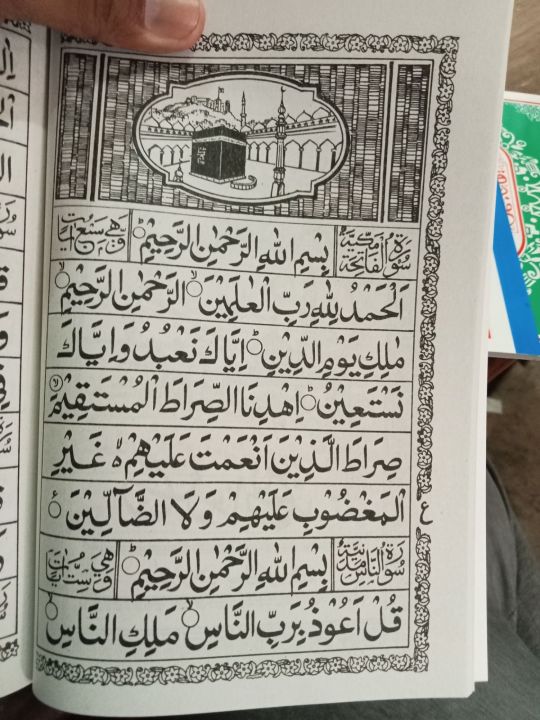 سورة الفاتحة مكية
بِسْمِ اللهِ الرَّحْمٰنِ الرَّحِيْمِ
وهي سبع آيات
اَلْحَمْدُ لِلّٰهِ رَبِّ الْعٰلَمِيْنَ الرَّحْمٰنِ الرَّحِيْمِ
مٰلِكِ يَوْمِ الدِّيْنِ اِيَّاكَ نَعْبُدُ وَاِيَّاكَ
نَسْتَعِيْنُ اِهْدِنَا الصِّرَاطَ الْمُسْتَقِيْمَ
صِرَاطَ الَّذِيْنَ اَنْعَمْتَ عَلَيْهِمْ ە غَيْرِ
الْمَغْضُوْبِ عَلَيْهِمْ وَلَا الضَّآلِّيْنَ
ع
سورة الناس مدنية
بِسْمِ اللهِ الرَّحْمٰنِ الرَّحِيْمِ
وهي ست آيات
قُلْ اَعُوْذُ بِرَبِّ النَّاسِ مَلِكِ النَّاسِ